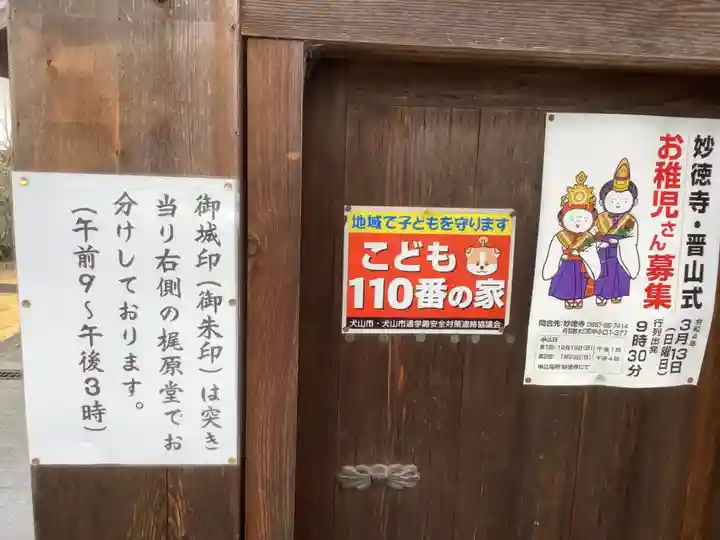 御城印（御朱印）は突き
当り右側の梶原堂でお
分けしております。
（午前９～午後３時）
地域で子どもを守ります
こども
110番の家
犬山市・犬山市通学路安全対策連絡協議会
妙徳寺・晋山式
お稚児さん募集
令和4年
3月13日
(日曜日)
行列出発
9時30分
問合先:妙徳寺
申込日
申込場所 妙徳寺にて